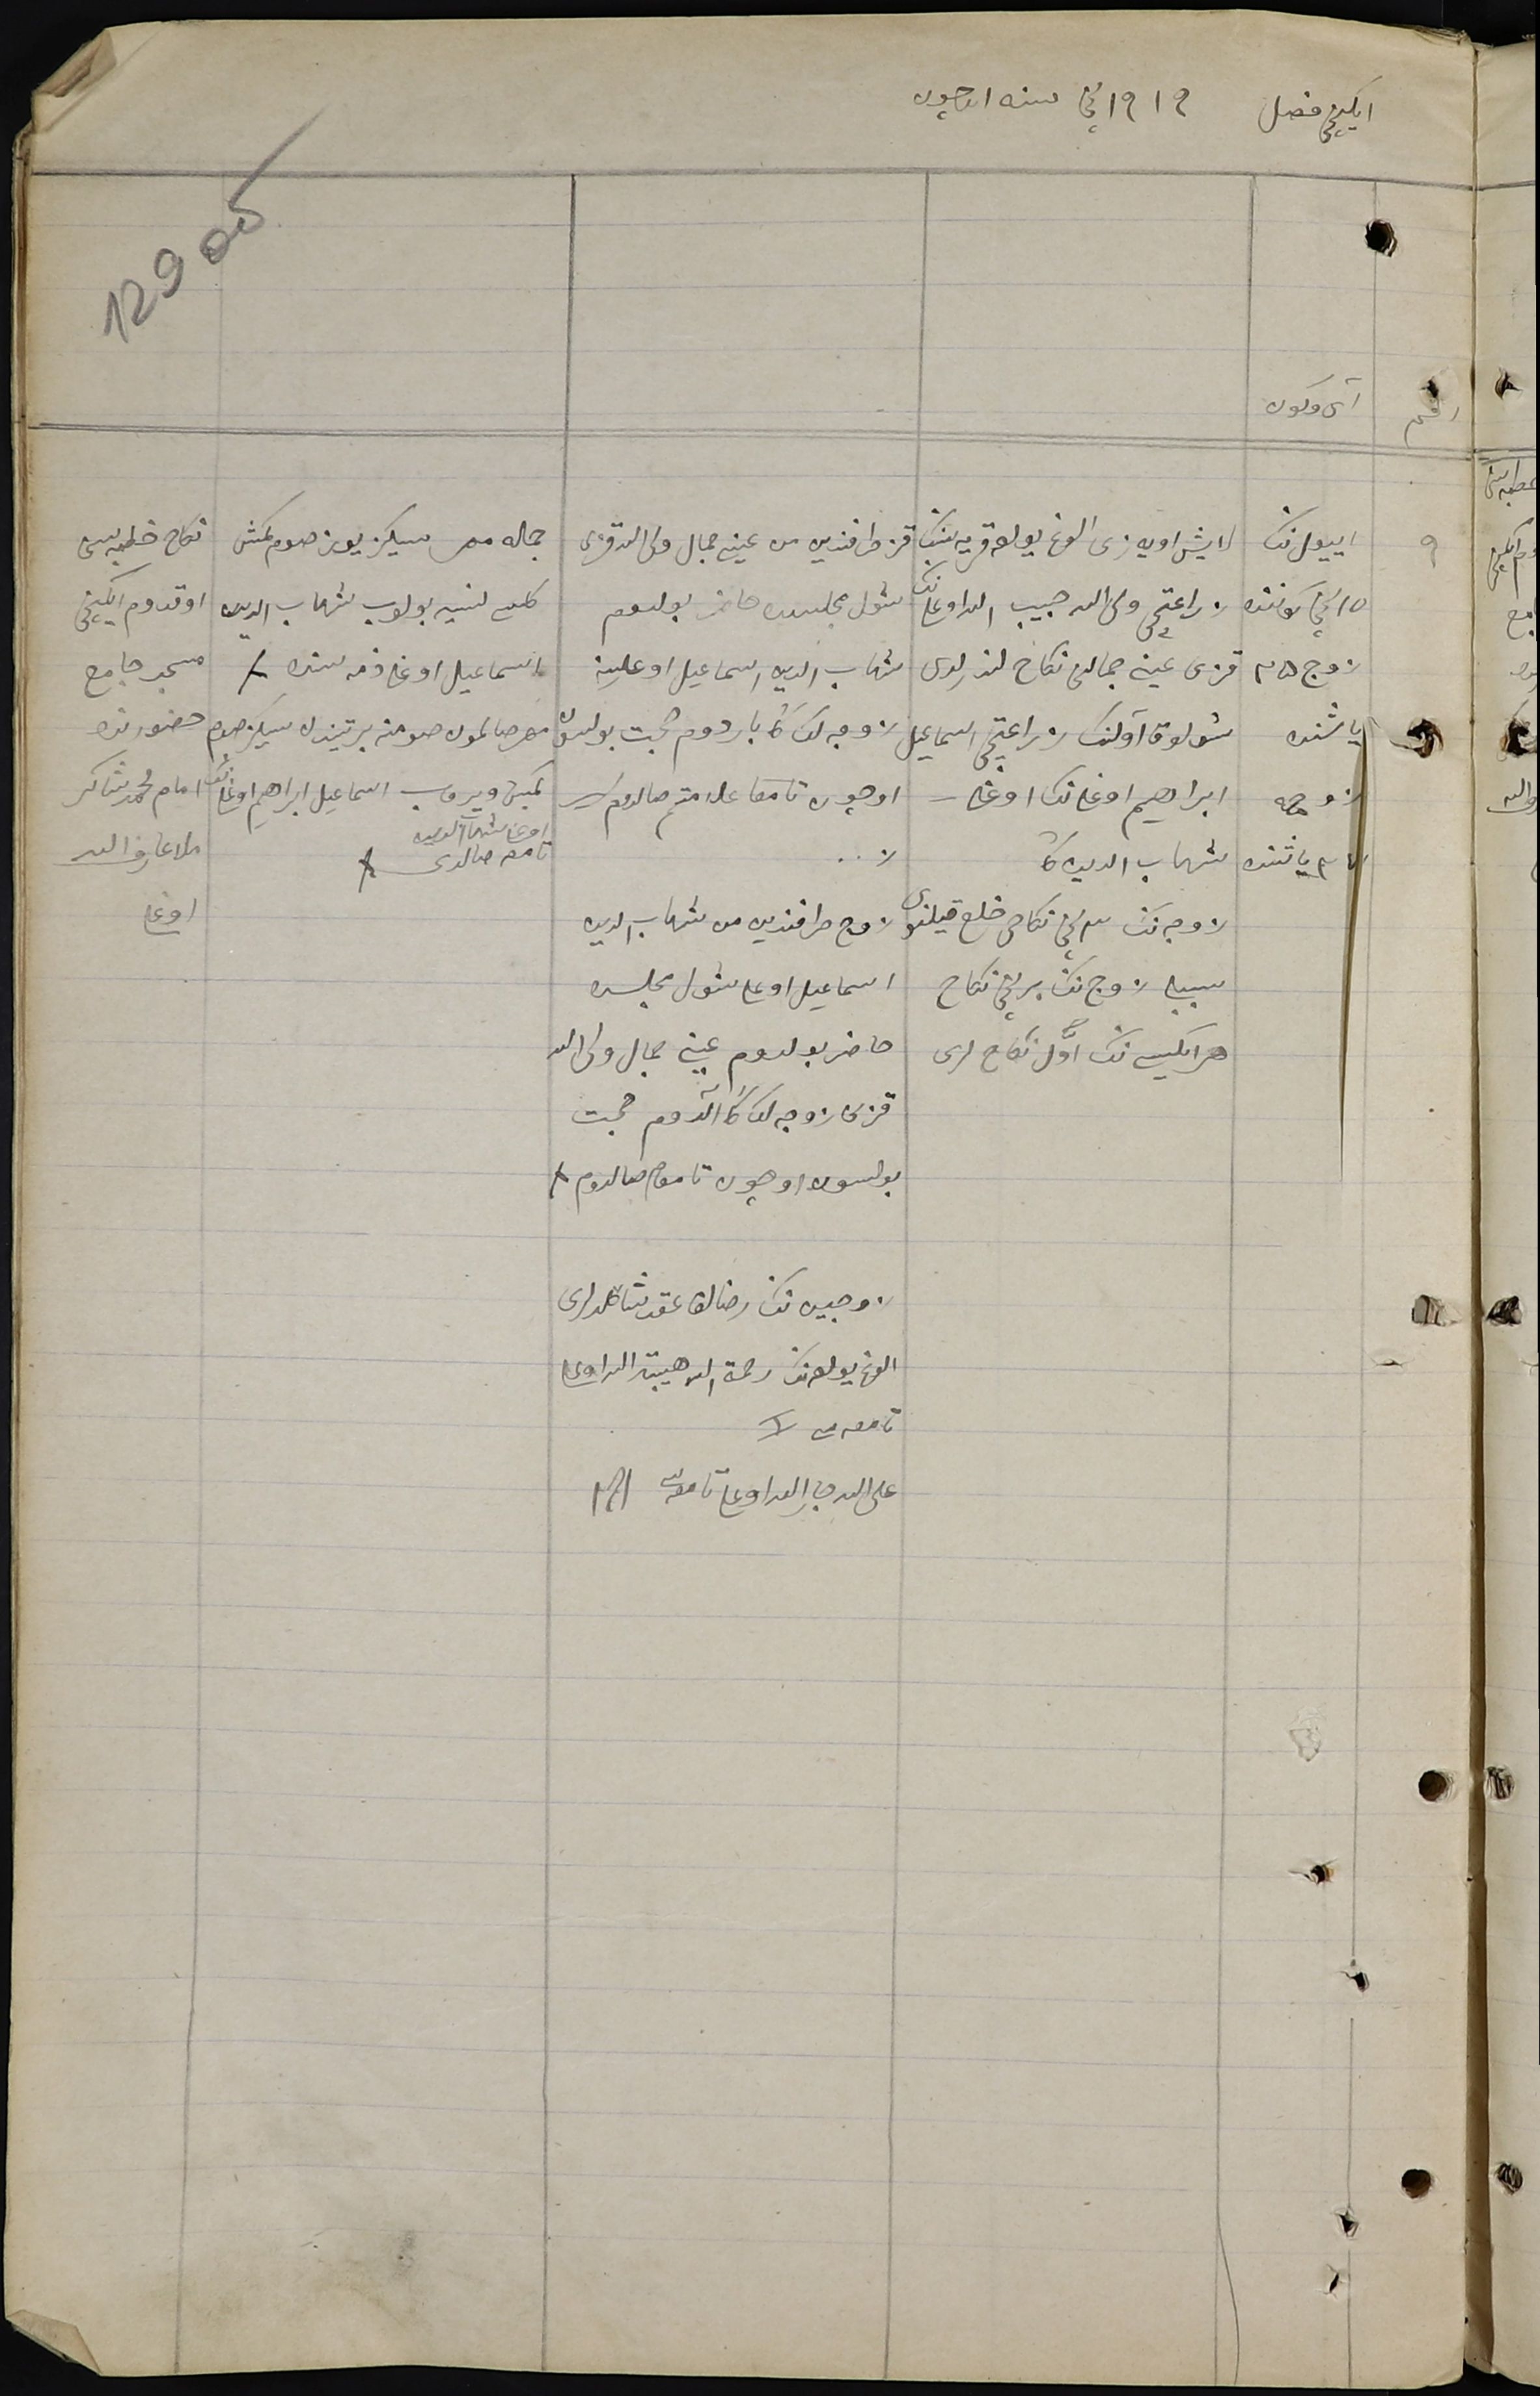 ایکنچی فصل ۱۹۱۹ نچی سنه اوچون
129 об
آی وکون
۹
اییول ننک
۱۵ نچی کوننده
زوج ۲۵
یاشنده
زوجه
یاشنده
لایش اویه زی الوغ یولە قریه سننک
زراعتچی ولی الله حبیب الله اوغلی ننک
قزی عینی جمالنی نکاح لندردی
شولوق آولننک زراعتچی اسماعیل
ابراهیم اوغلی ننک اوغلی
شهاب الدین کا
زوجه ننک ۳ نچی نکاحی خلع قیلنو
سببلی زوج ننک برنچی نکاح
هر ایکیسی ننک اول نکاح لری
قز طرافندین من عینی جمال ولی الله قزی
شول مجلسده حاضر بولدوم
شهاب الدین اسماعیل اوغلینه
زوجه لککا باردوم حجت بولسون
اوچون تامغا علامتم صالدوم
زوج طرافندین من شهاب الدین
اسماعیل اوغلی شول مجلسده
حاضر بولدوم عینی جمال ولی الله
قزی زوجه لککا آلدوم حجت
بولسون اوچون تامغام صالدوم
زوجین ننک رضالقا عقد شاهدلری
الوغ یولە ننک رحمة الله هبة الله اوغلی
تامغاسی
علی الله جار الله اوغلی تامغاسی
جماله مهر سیکز یوز صوم کمش
کلی نسیه بولوب شهاب الدین
اسماعیل اوغلی ذمه سنده
مهر صالمون صومنه برتیندن سیکز صوم
کمش ویروب اسماعیل ابراهیم اوغلی ننک
اوغلی شهاب الدین
تامغه صالدی
نکاح خطبه سی
اوقدوم ایکنچی
مسجد جامع
حضورنده
امام محمد شاکر
ملا عارف الله
اوغلی